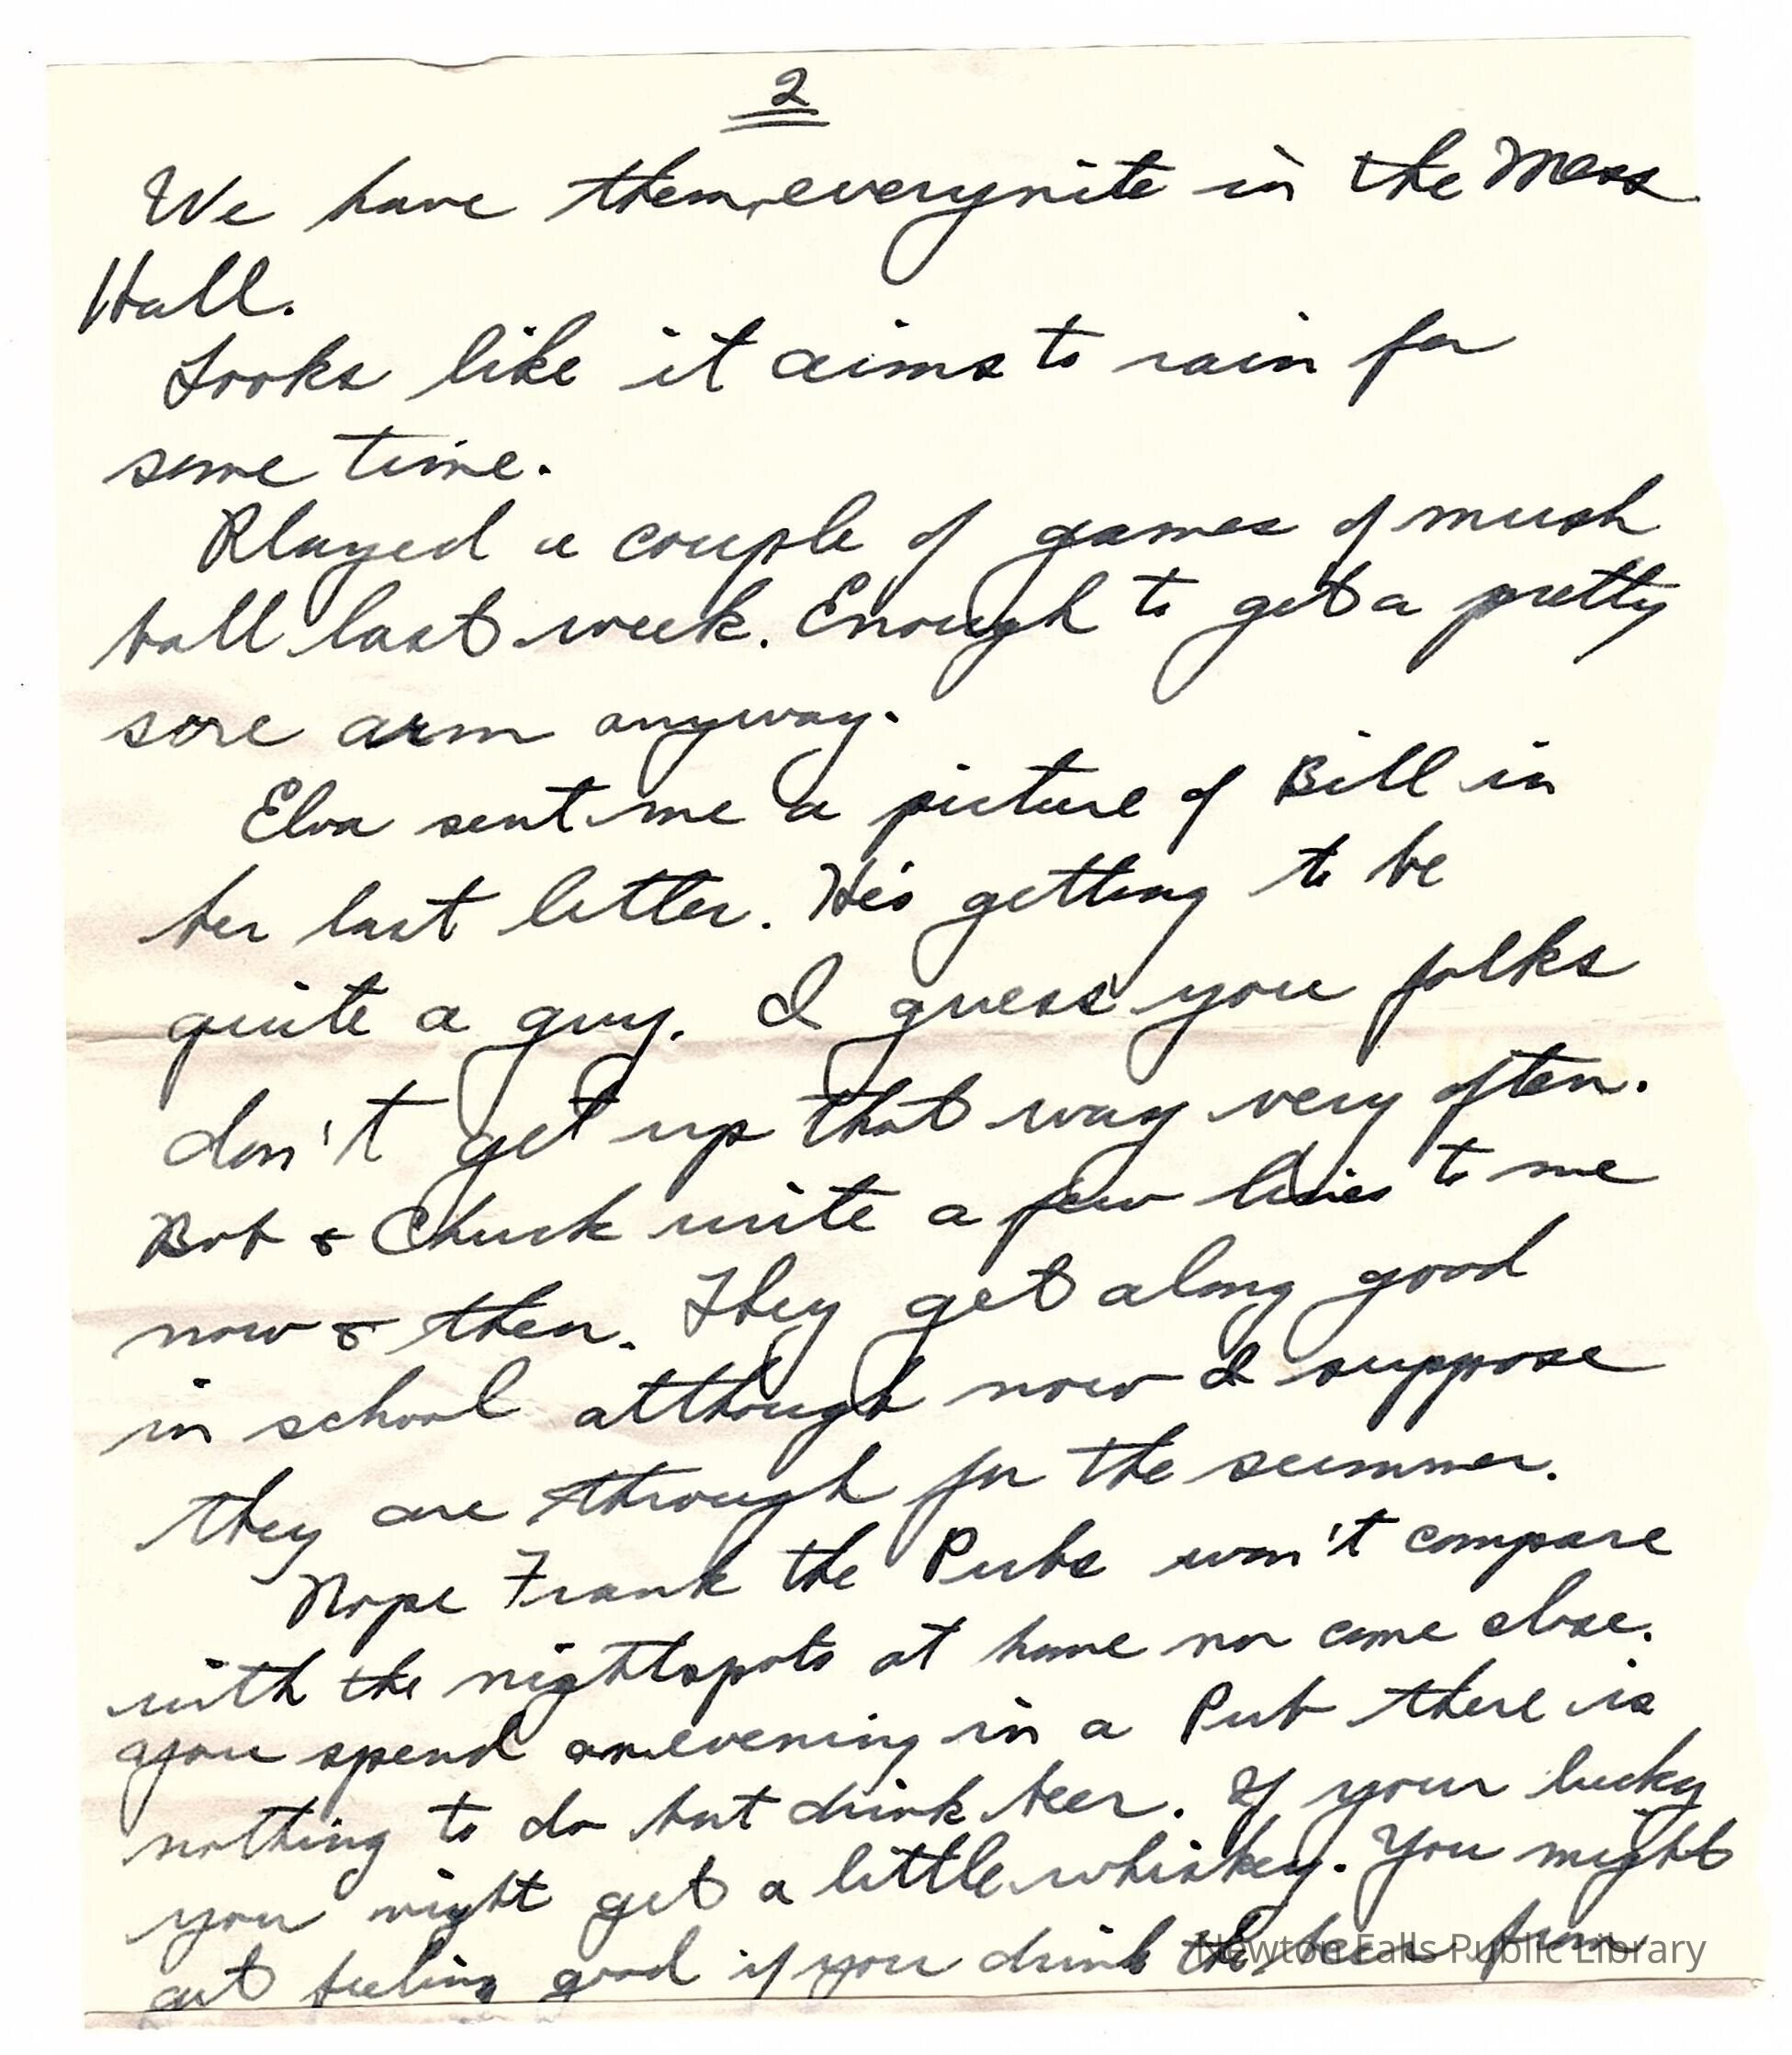 2
We have them, everynite in the Mess
Hall.
Looks like it aims to rain for
some time.
Played a couple of games of mush
ball last week. Enough to get a pretty
sore arm anyway.
Elva sent me a picture of Bill in
her last letter. He's getting to be
quite a guy. I guess you folks
don't get up that way very often.
Bob & Chuck write a few lines to me
now & then. They get along good
in school although now I suppose
they are through for the summer.
Nope Frank the Pubs won't compare
with the nightspots at home nor come close.
you spend an evening in a Pub there is
nothing to do but drink beer. If your lucky
you might get a little whiskey. You might
get feeling good if you drink the beer from
Newton Falls Public Library